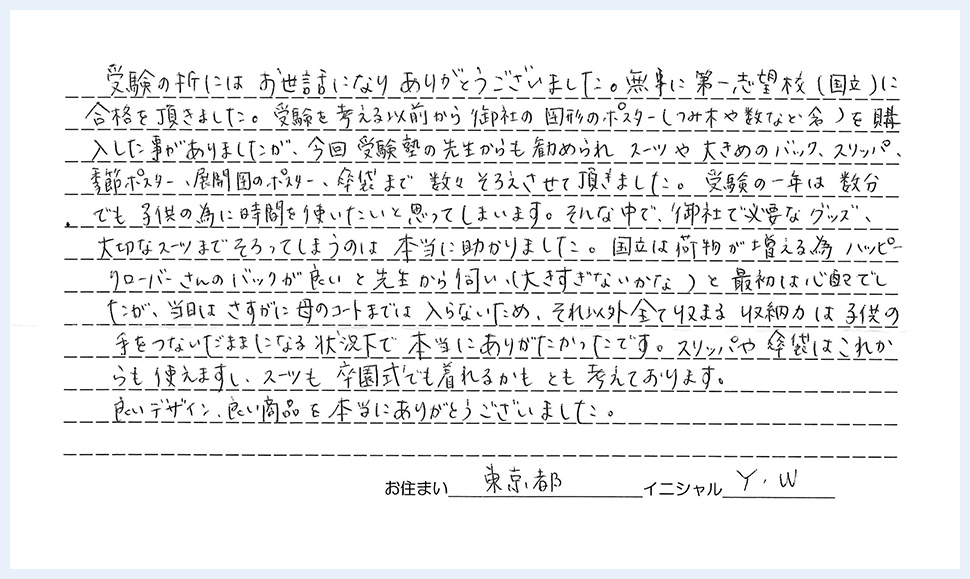 受験の折には お世話になり ありがとうございました。無事に 第一志望校（国立）に
合格を頂きました。受験を考える以前から御社の図形のポスター（つみ木や数など含）を購
入した事がありましたが、今回 受験塾の先生からも勧められ スーツや大きめのバック、スリッパ、
季節ポスター、展開図のポスター、傘袋まで 数々そろえさせて頂きました。受験の一年は 数分
でも 子供の為に時間を使いたいと思ってしまいます。そんな中で、御社で必要なグッズ、
大切なスーツまでそろってしまうのは 本当に助かりました。国立は荷物が増える為 ハッピー
クローバーさんのバックが良いと先生から伺い、（大きすぎないかな）と最初は心配でし
たが、当日は さすがに母のコートまでは 入らないため、それ以外全て収まる 収納力は子供の
手をつないだままになる状況下で 本当にありがたかったです。スリッパや傘袋はこれか
らも使えますし、スーツも 卒園式でも着れるかも とも 考えております。
良いデザイン、良い商品を本当にありがとうございました。
お住まい 東京都 イニシャル Y．W